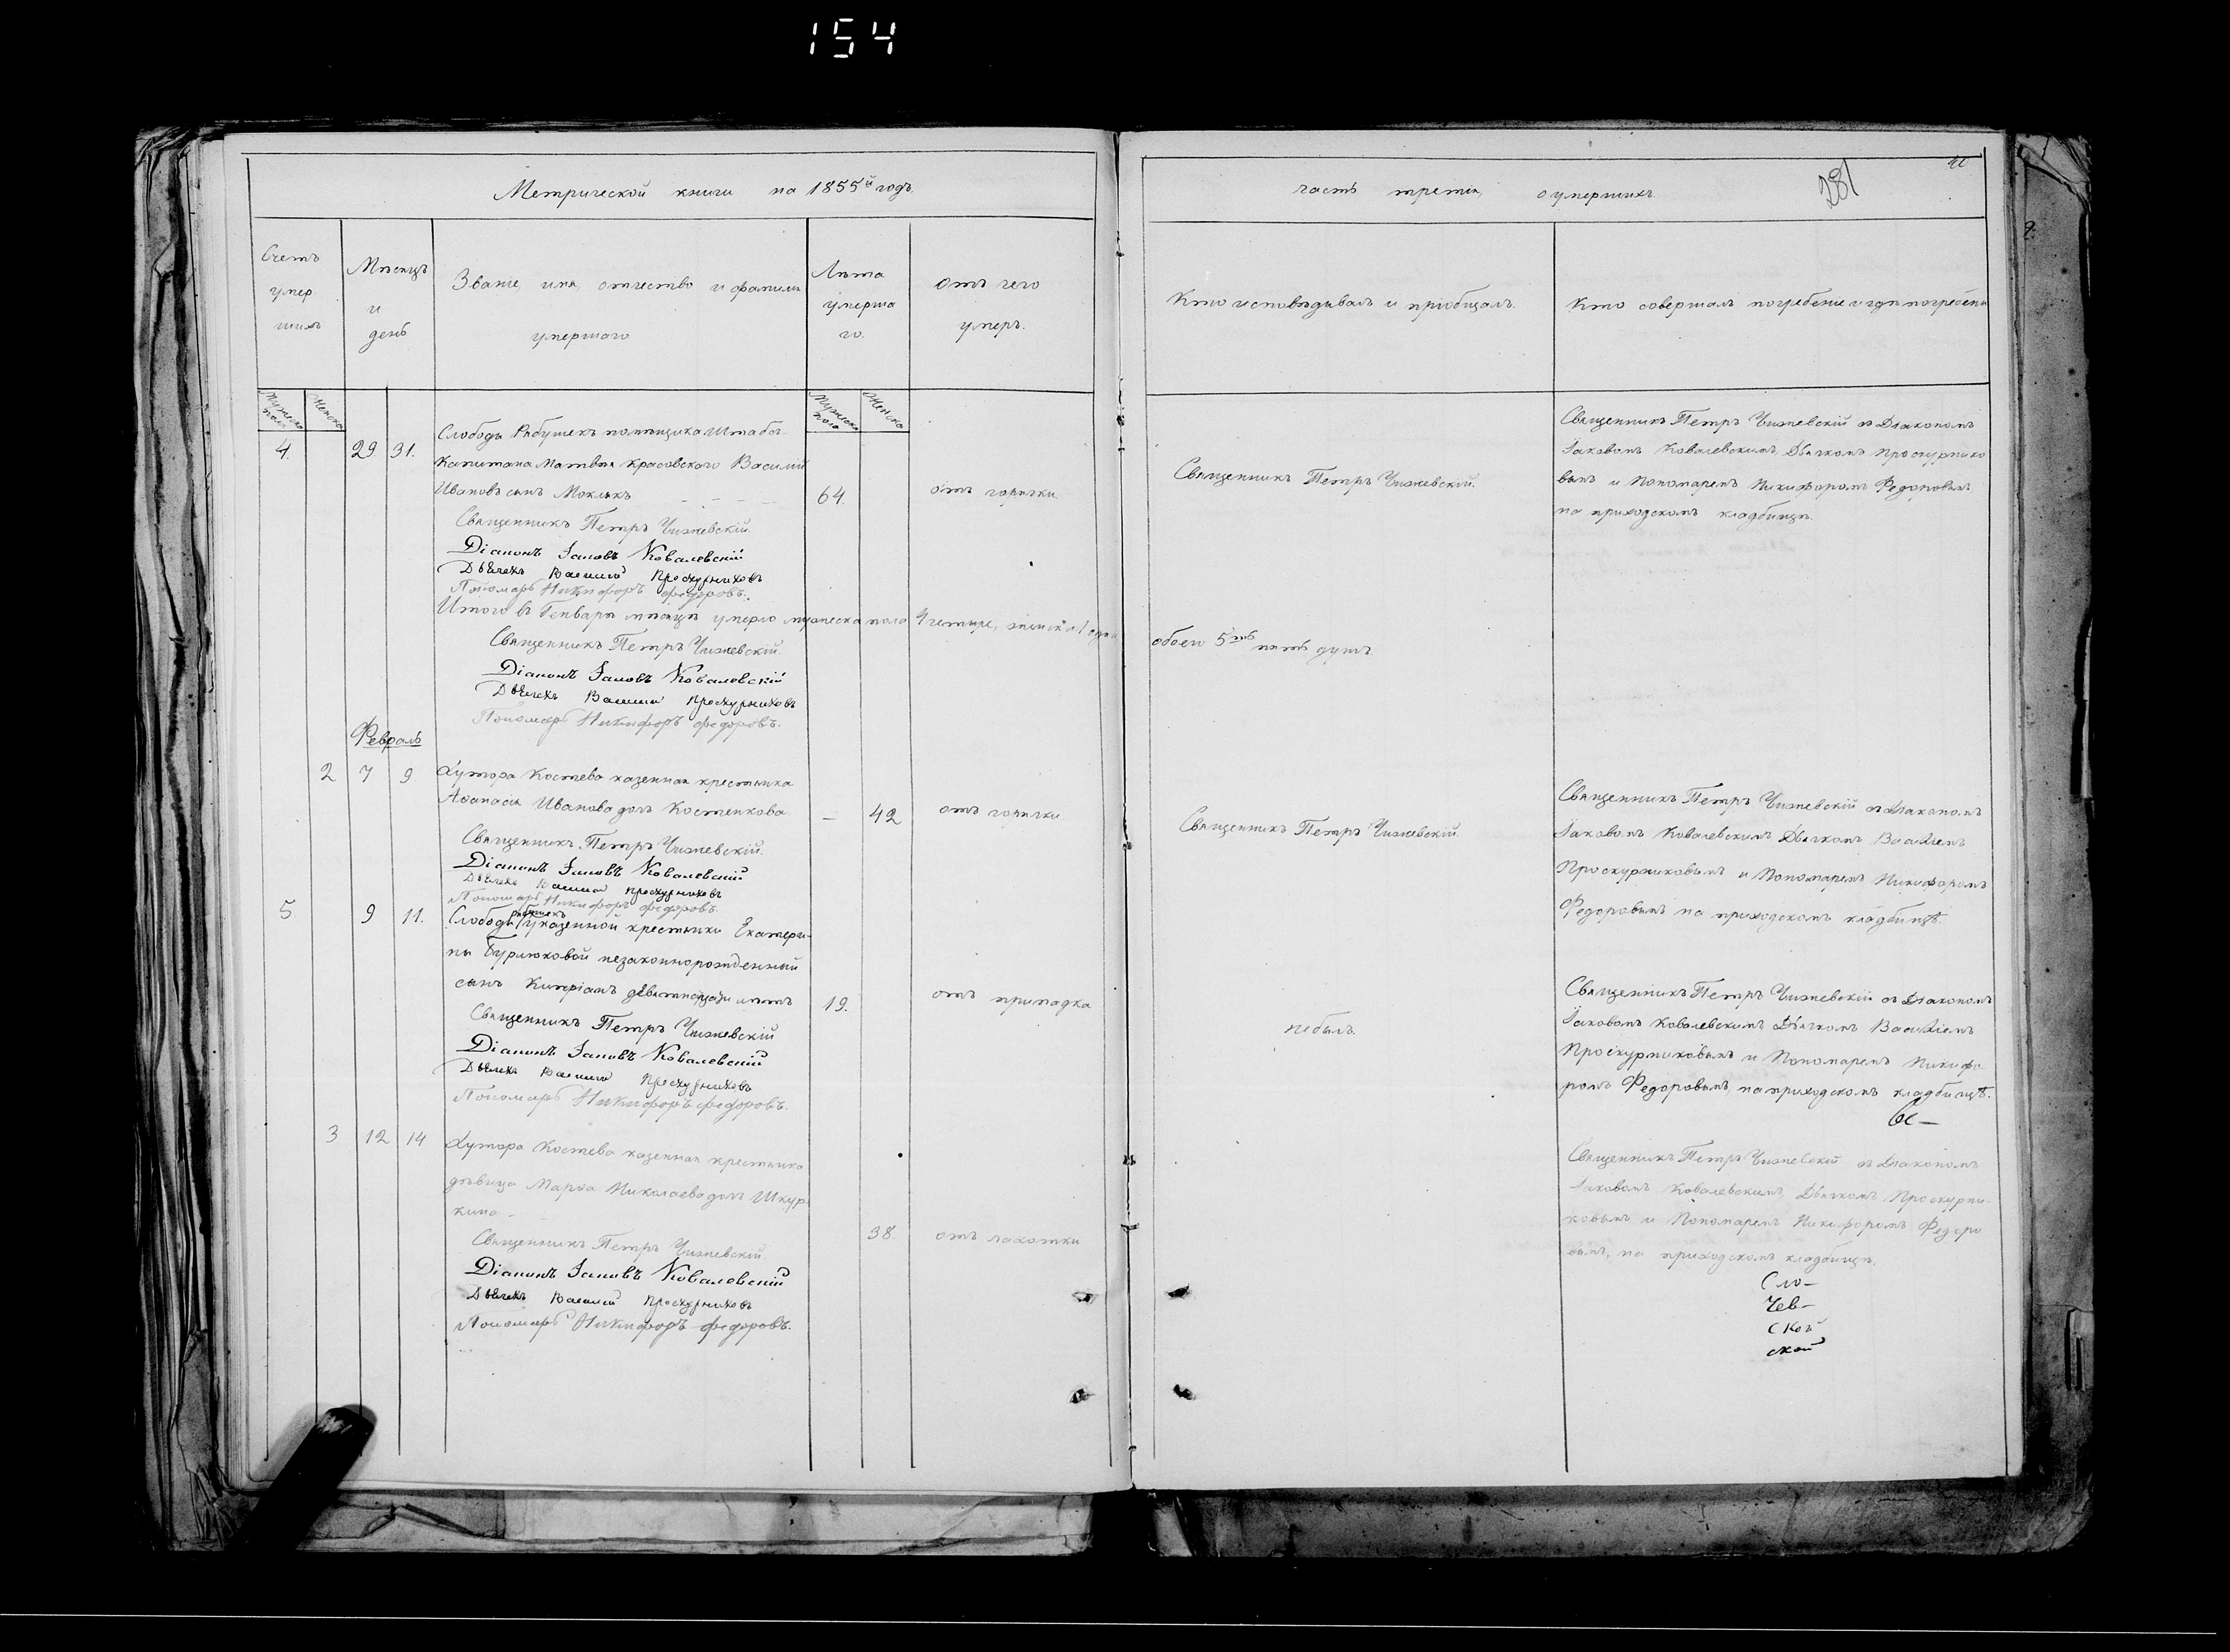 154
Метрической книги на 1855й годъ.
Счетъ умер шихъ
Мѣсяцъ и день
Званіе, имя, отчество и фамилія умершаго
Лѣта умерша го.
Отъ чего умеръ.
Мужеска пола
Женска
Мужеска пола
Женска
4. 29. 31.
Слободы Рябушекъ помѣщика Штабсъ
Капитана Матвѣя Красовского Василій
Ивановъ сынъ Моклякъ 64. отъ горячки
Священникъ Петръ Чижевскій.
Діаконъ Іаковъ Ковалевскій
Дьячекъ Василій Проскурниковъ
Пономарь Никифоръ Федоровъ.
Итого въ Генварѣ мѣсяцѣ умерло мужеска пола 4 четыре, женска 1 одна
Священникъ Петръ Чижевскій.
Діаконъ Іаковъ Ковалевскій
Дьячекъ Василій Проскурниковъ
Пономарь Никифоръ Федоровъ.
Февраль
2 7 9
Хутора Костева казенная крестьянка
Афанасія Иванова дочь Костенкова — 42 отъ горячки
Священникъ Петръ Чижевскій.
Діаконъ Іаковъ Ковалевскій
Дьячекъ Василій Проскурниковъ
Пономарь Никифоръ Федоровъ.
5 9 11.
Слободы Рябушекъ казенной крестьянки Екатери-
ны Бурлюковой незаконнорожденный
сынъ Кипріанъ девятнадцати лѣтъ 19. отъ припадка
Священникъ Петръ Чижевскій
Діаконъ Іаковъ Ковалевскій
Дьячекъ Василій Проскурниковъ
Пономарь Никифоръ Федоровъ.
3 12 14
Хутора Костева казенная крестьянка
дѣвица Марѳа Николаева дочь Шкур
кина 38. отъ чахотки
Священникъ Петръ Чижевскій.
Діаконъ Іаковъ Ковалевскій
Дьячекъ Василій Проскурниковъ
Пономарь Никифоръ Федоровъ.
часть третія, о умершихъ.
281
40
Кто исповѣдывалъ и пріобщалъ.
Кто совершалъ погребеніе и гдѣ погребены
Священникъ Петръ Чижевскій.
Священникъ Петръ Чижевскій съ Діакономъ
Іаковомъ Ковалевскимъ, Дьячкомъ Проскурнико
вымъ и Пономаремъ Никифоромъ Федоровымъ
на приходскомъ кладбищѣ.
обоего 5ть пять душъ.
Священникъ Петръ Чижевскій.
Священникъ Петръ Чижевскій съ Діакономъ
Іаковомъ Ковалевскимъ, Дьячкомъ Василіемъ
Проскурниковымъ и Пономаремъ Никифоромъ
Федоровымъ на приходскомъ кладбищѣ.
небылъ.
Священникъ Петръ Чижевскій съ Діакономъ
Іаковомъ Ковалевскимъ Дьячкомъ Василіемъ
Проскурниковымъ и Пономаремъ Никифо
ромъ Федоровымъ, на приходскомъ кладбищѣ.
Священникъ Петръ Чижевскій съ Діакономъ
Іаковомъ Ковалевскимъ, Дьячкомъ Проскурни-
ковымъ и Пономаремъ Никифоромъ Федоро
вымъ, на приходскомъ кладбищѣ.